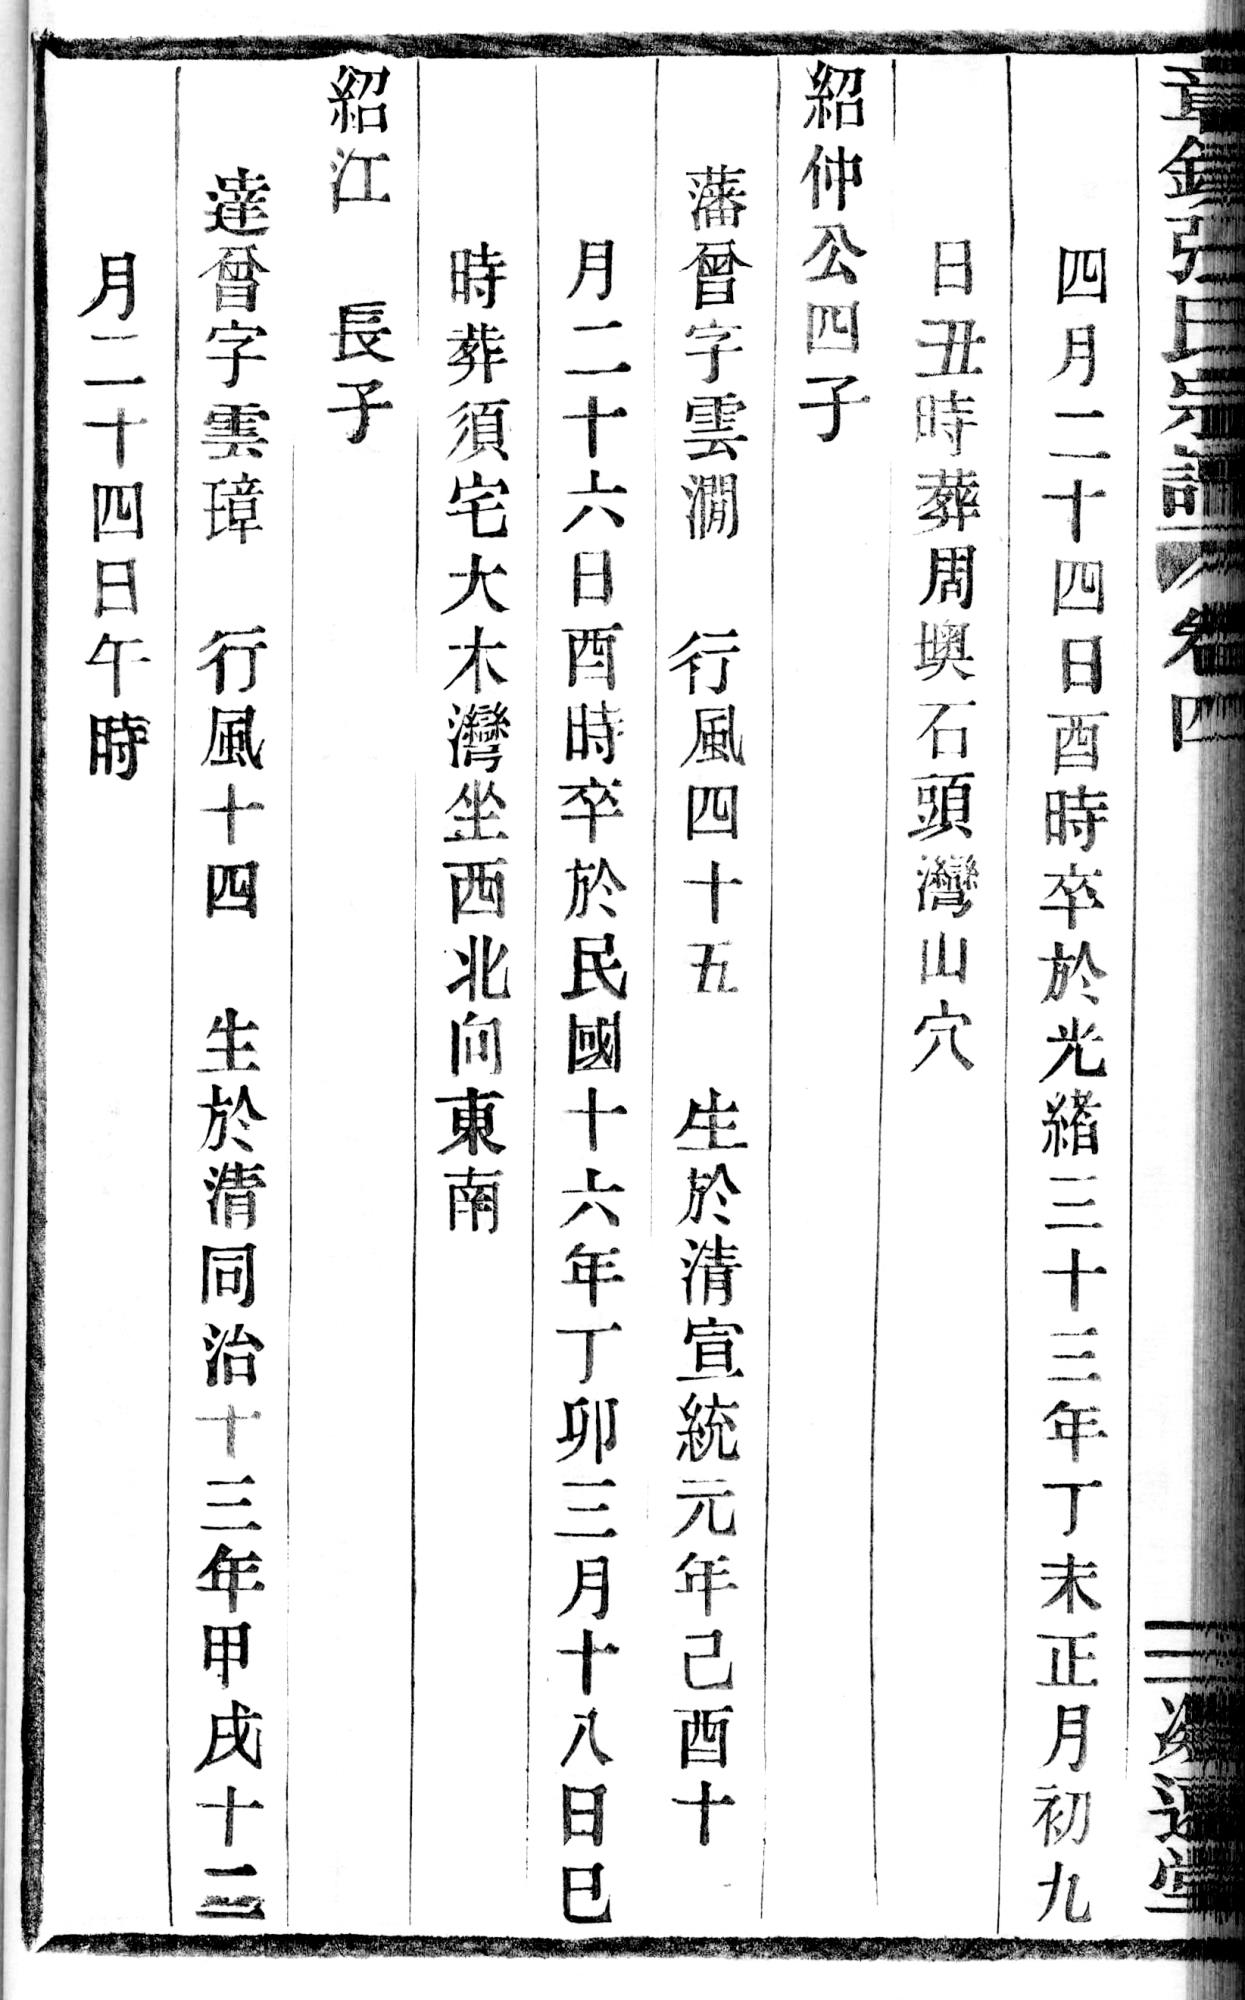 章鎮張氏宗譜 卷四 二 追遠堂
四月二十四日酉時卒於光緒三十三年丁未正月初九
日丑時葬周墺石頭灣山穴
紹仲公四子
藩曾字雲澗 行風四十五 生於清宣統元年己酉十
月二十六日酉時卒於民國十六年丁卯三月十八日巳
時葬須宅大木灣坐西北向東南
紹江 長子
達曾字雲璋 行風十四 生於清同治十三年甲戌十二
月二十四日午時